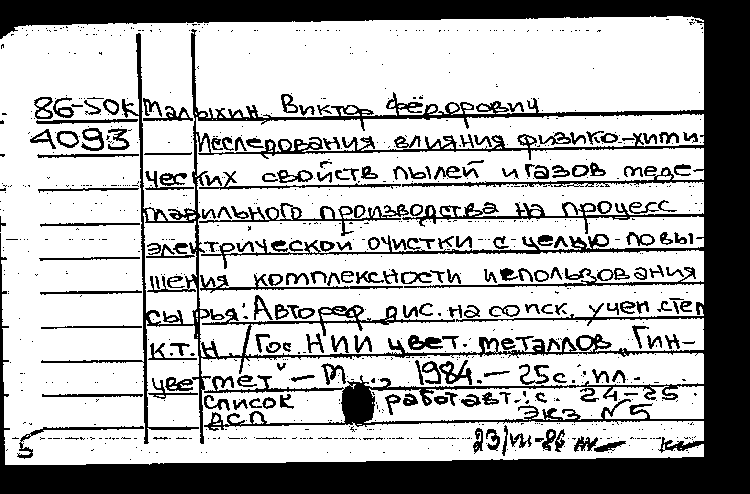 86-50к Малыхин, Виктор Фёдорович
4093 Исследования влияния физико-хими-
ческих свойств пылей и газов меде-
плавильного производства на процесс
электрической очистки с целью повы-
шения комплексности использования
сырья: Автореф. дис. на соиск. учен. степ
к.т.н. / Гос. НИИ цвет. металлов „Гин-
цветмет" - М., 1984. - 25с.: ил.
Список работ авт.: с. 24-25.
ДСП Экз №5
5 23/VII-86